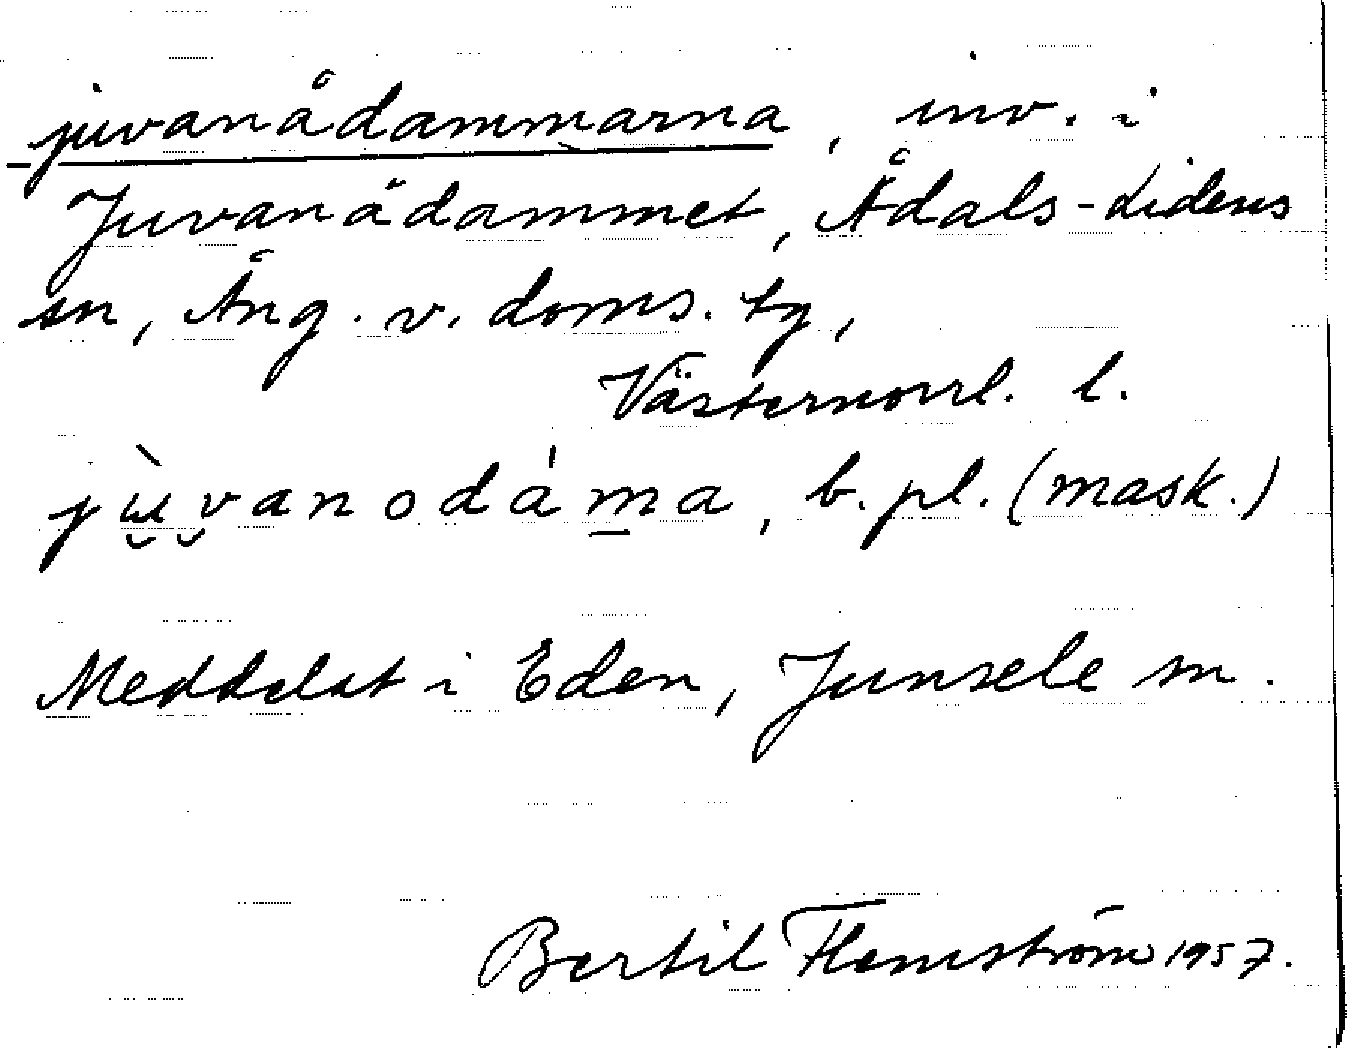 juvanådammarna, inv. i
Juvanådammet, Ådals-Lidens
sn, Ång. v. doms. tg,
Västernorrl. l.
jùvanodáma, b. pl. (mask.)
Meddelat i Eden, Junsele sn.
Bertil Flemström 1957.